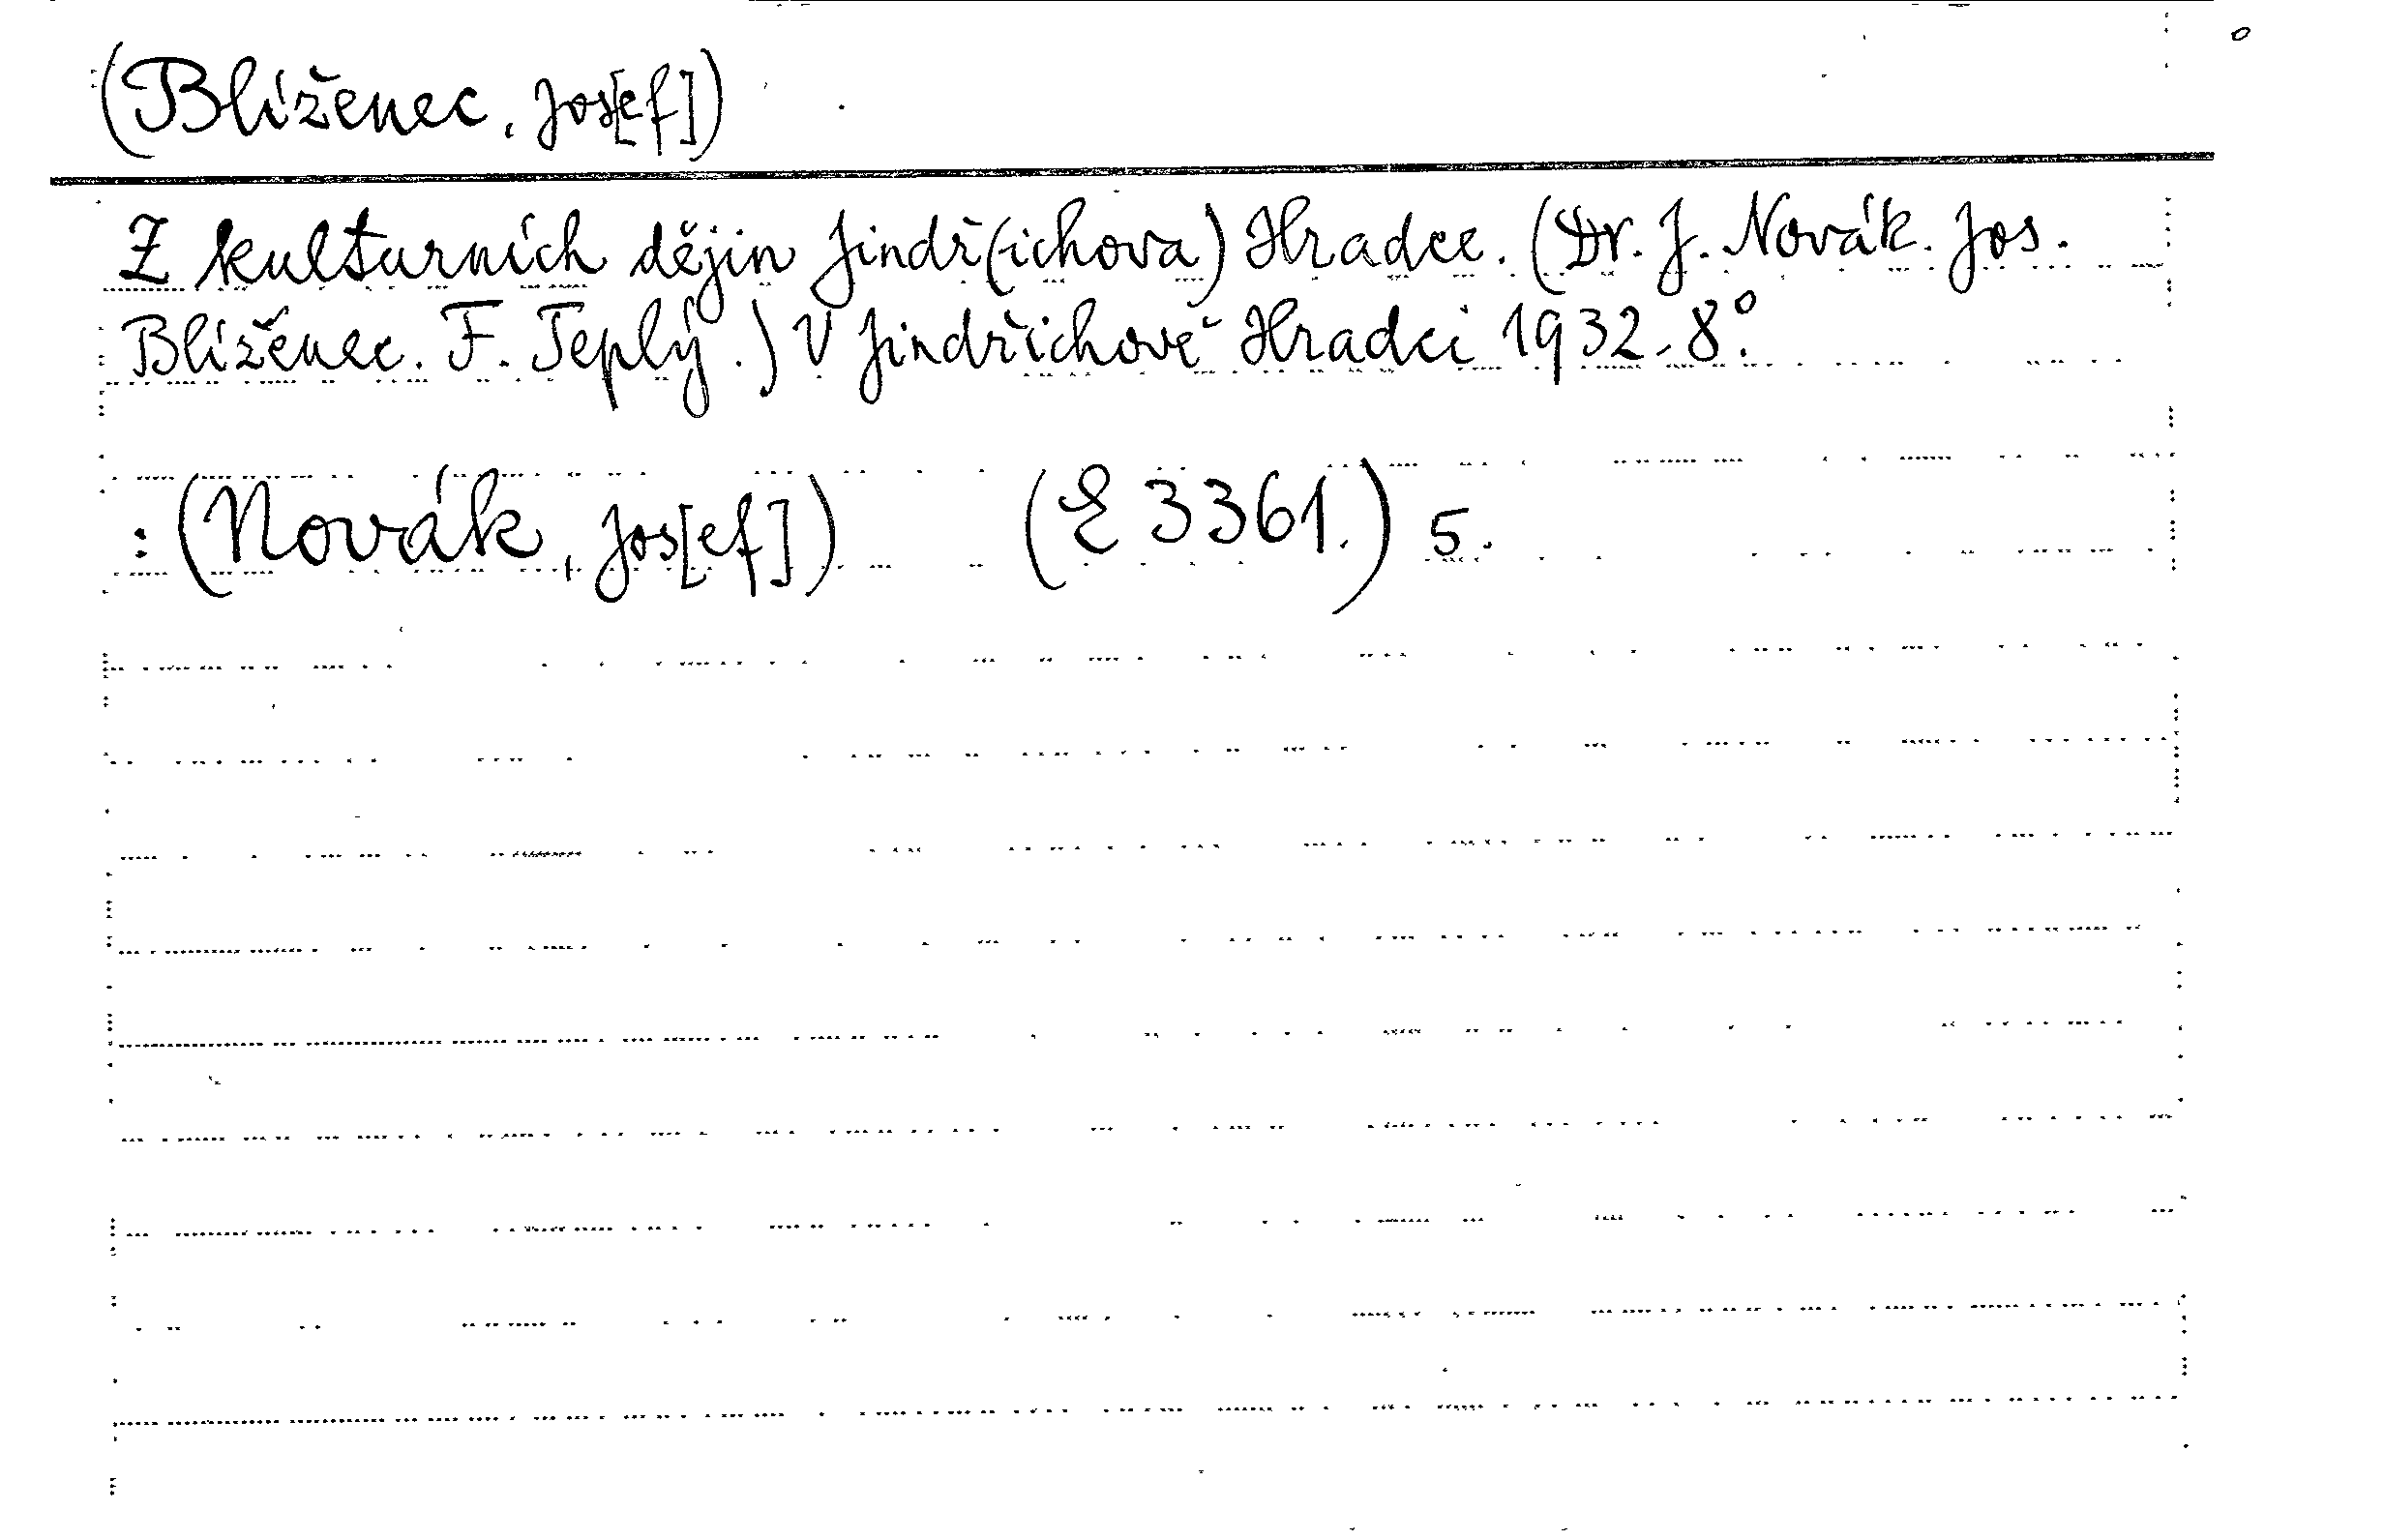 (Blíženec, Jos[ef])
Z kulturních dějin Jindř(ichova) Hradce. (Dr. J. Novák. Jos.
Blíženec. F. Teplý.) V Jindřichově Hradci 1932. 8°.
: (Novák, Jos[ef]) (E 3361.) 5.